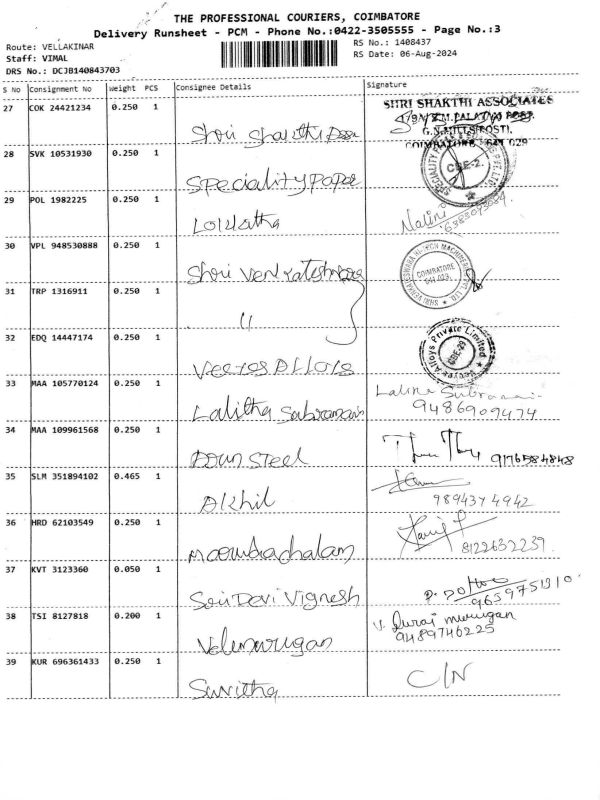 THE PROFESSIONAL COURIERS, COIMBATORE
Delivery Runsheet - PCM - Phone No.:0422-3505555 - Page No.:3
Route: VELLAKINAR RS No.: 1408437
Staff: VIMAL RS Date: 06-Aug-2024
DRS No.: DCJB140843703
S No Consignment No Weight PCS Consignee Details Signature
27 COK 24421234 0.250 1 SHRI SHAKTHI ASSOCIATES
G.N.MILLS(POST),
COIMBATORE - 641 029
Shri Shakthi Asso
28 SVK 10531930 0.250 1 CBE-2.
Speciality Paper
29 POL 1982225 0.250 1
Lokitha Nalini
30 VPL 948530888 0.250 1
Shri Venkateshwara COIMBATORE
641 029
31 TRP 1316911 0.250 1
11
32 EDQ 14447174 0.250 1 Alloys Private Limited
CBE-29
Veeyes Alloys
33 MAA 105770124 0.250 1
Lalitha Subramani Lalitha Subramani
9486909474
34 MAA 109961568 0.250 1
Steel 9176584848
35 SLM 351894102 0.465 1
Akhil 9894374942
36 HRD 62103549 0.250 1
8122632239
37 KVT 3123360 0.050 1
Sri Devi Vignesh 9659751310
38 TSI 8127818 0.200 1 V. Durai murugan
9489746225
Velumurugan
39 KUR 696361433 0.250 1
Sunitha C/N